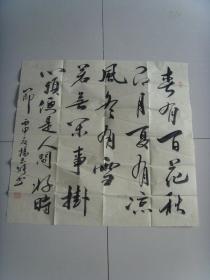 春有百花秋
有月夏有凉
风冬有雪
若无闲事挂
心头便是人间好时
节 丙申夏杨
书